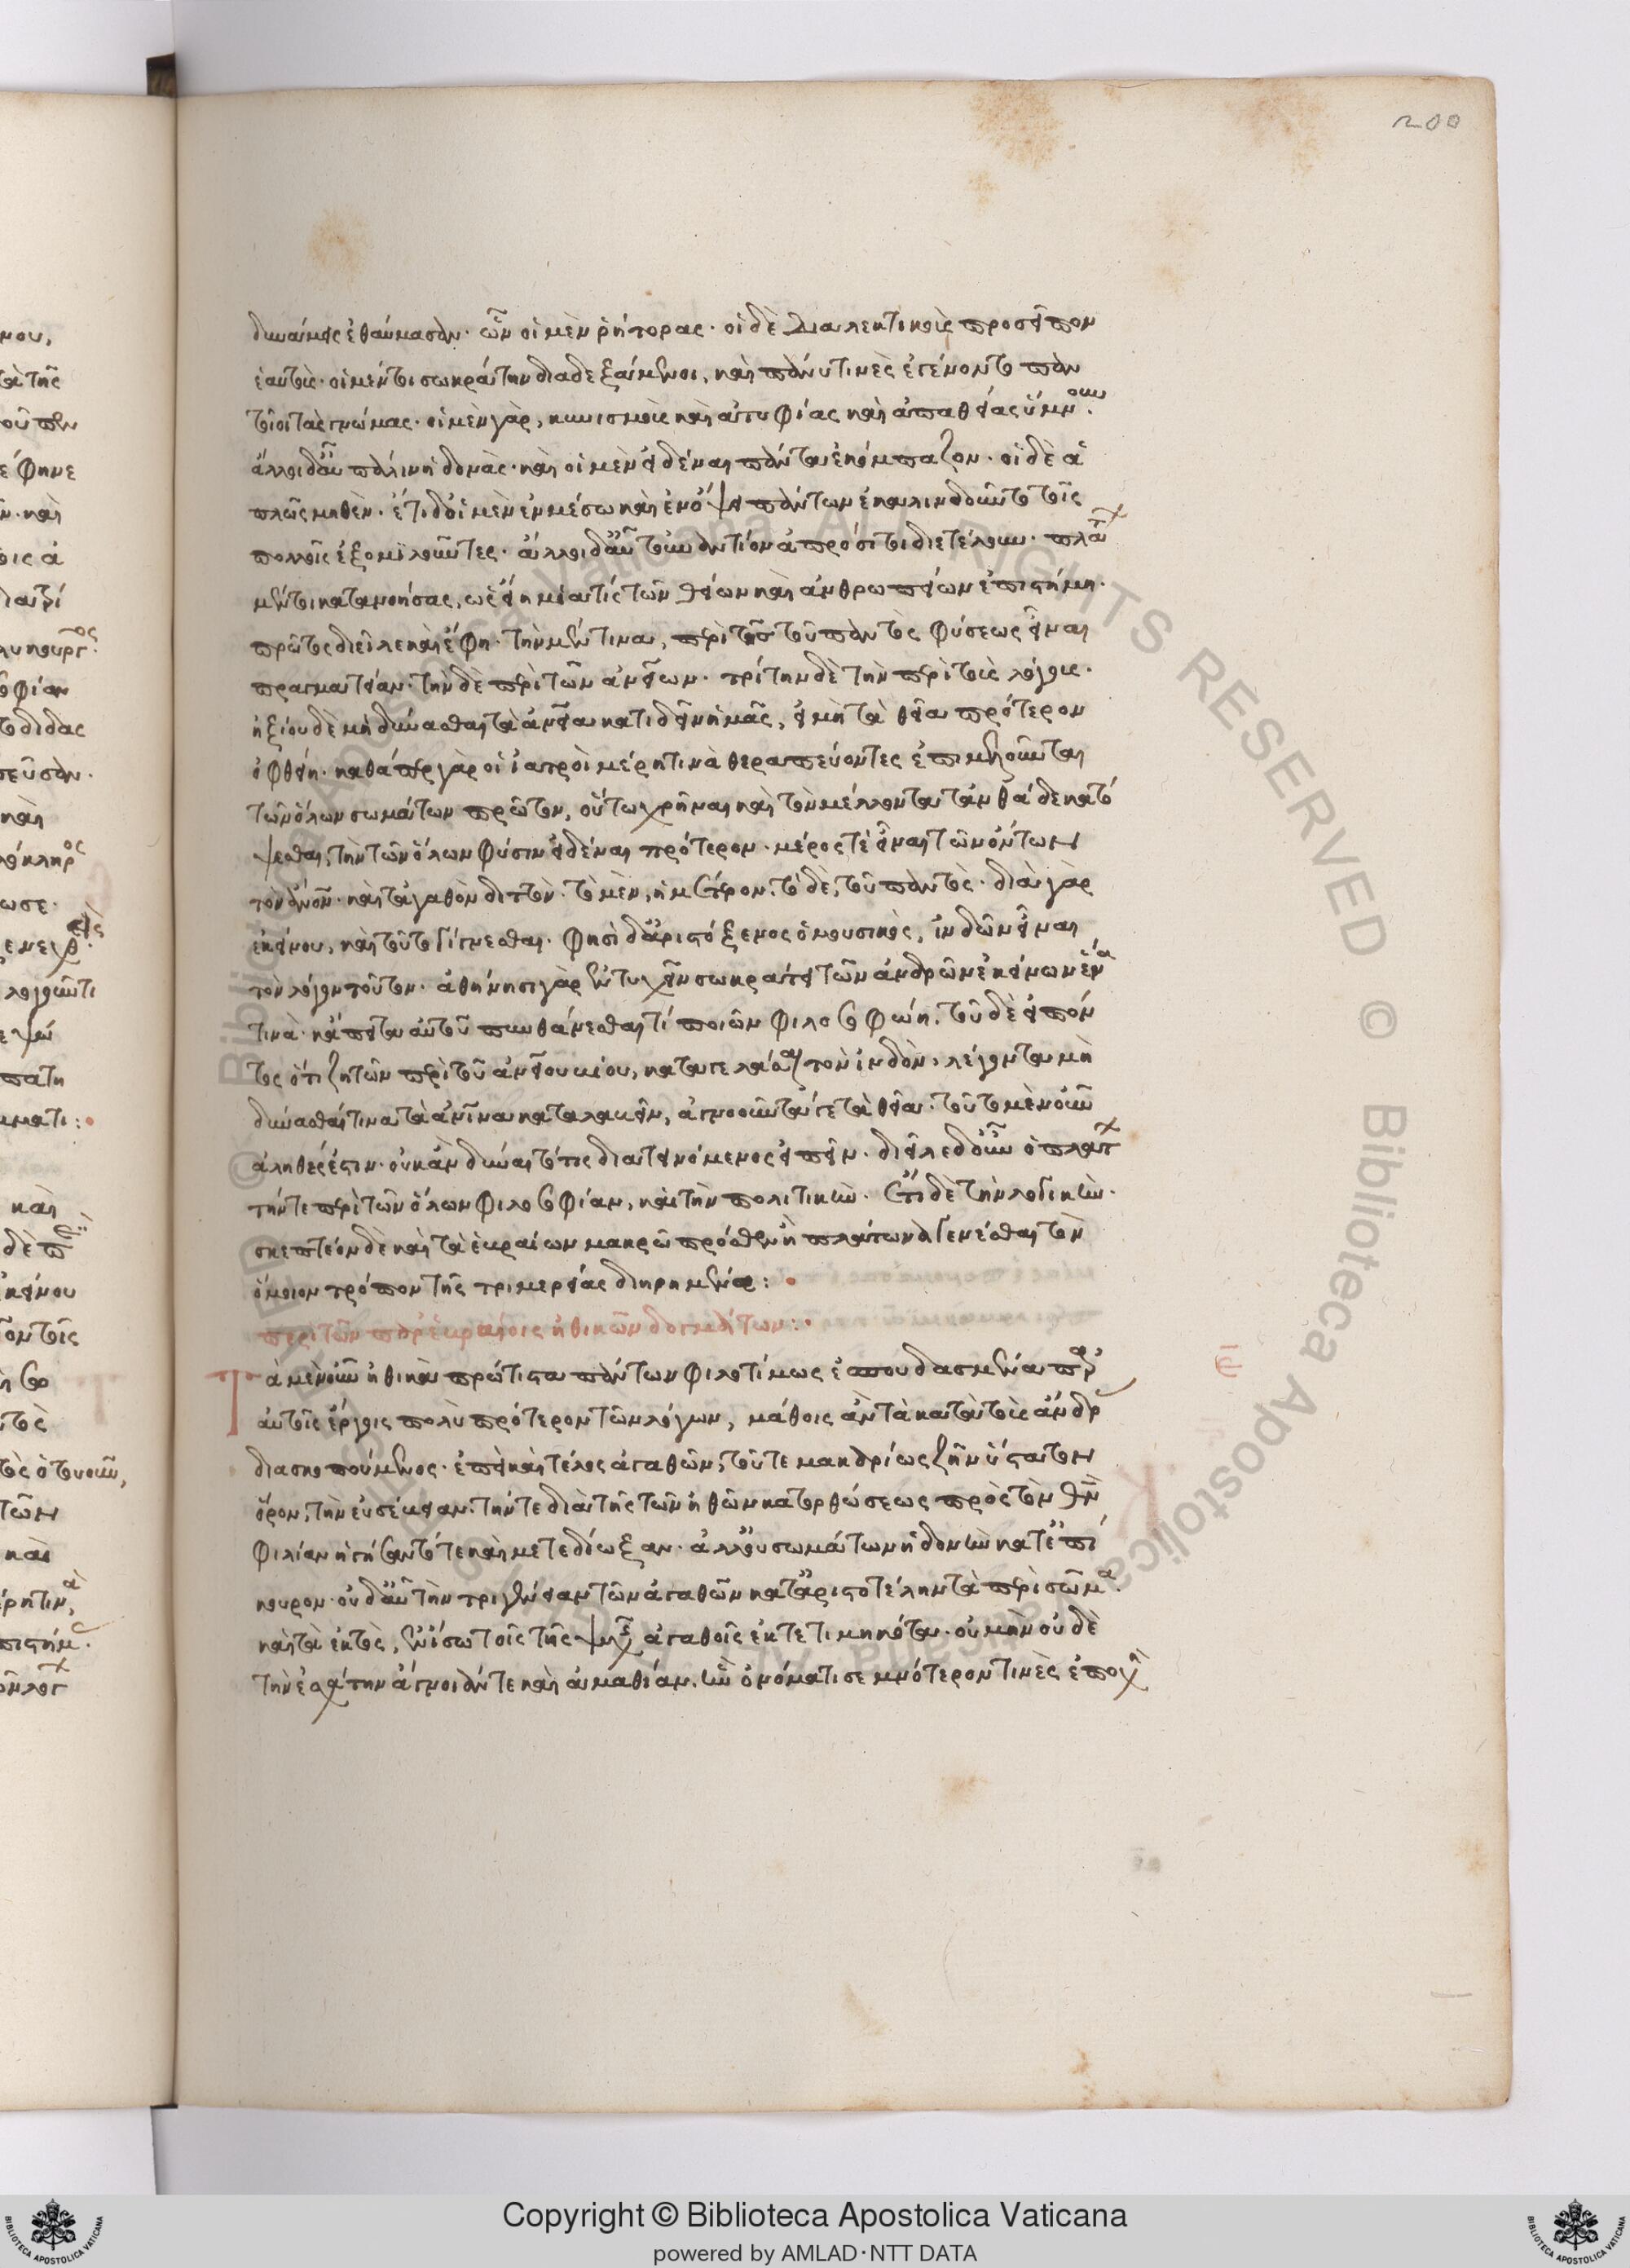 200
δυνάμεις ἐθαύμασαν· ὧν οἱ μὲν ῥήτορας· οἱ δὲ διαλεκτικοὺς προσεῖπον
ἑαυτοὺς· οἱ μέν τοι σωκράτην διαδεξάμενοι, καὶ πάνυ τινὲς ἐγένοντο παν
τοῖοι τὰς γνώμας· οἱ μὲν γὰρ, κυνισμοὺς καὶ ἀτυφίας καὶ ἀπαθείας ὕμνουν·
ἄλλοι δ' αὖ πάλιν ἡδονάς· καὶ οἱ μὲν εἰδέναι πάντα ἐκόμπαζον· οἱ δὲ ἁ
πλῶς μηθέν· ἔτι δ' οἱ μὲν ἐν μέσω καὶ ἐν ὄψει πάντων ἐκαλινδοῦντο τοῖς
πολλοῖς ἐξομιλοῦντες· ἄλλοι δ' αὖ τοὐναντίον ἀπρόσιτοι διετέλουν· πλάτ
μέντοι κατανοήσας, ὡς εἴη μία τίς τῶν θείων καὶ ἀνθρωπείων ἐπιστήμη·
πρῶτος διεῖλε καὶ ἔφη· τὴν μέν τινα, περὶ τῆς τοῦ παντὸς φύσεως εἶναι
πραγματείαν· τὴν δὲ περὶ τῶν ἀνθρωπείων· τρίτην δὲ τὴν περὶ τοὺς λόγους·
ἠξίου δὲ μὴ δύνασθαι τὰ ἀνθρώπεια κατιδεῖν ἡμᾶς, εἰ μὴ τὰ θεῖα πρότερον
ὀφθείη· καθάπερ γὰρ οἱ ἰατροὶ μέρη τινὰ θεραπεύοντες ἐπιμελοῦνται
τῶν ὅλων σωμάτων πρῶτον, οὕτω χρῆναι καὶ τὸν μέλλοντα τἀνθάδε κατό
ψεσθαι, τὴν τῶν ὅλων φύσιν εἰδέναι πρότερον· μέρος τὲ εἶναι τῶν ὄντων
τὸν ἄνον· καὶ τἀγαθὸν διττὸν· τὸ μὲν, ἡμέτερον· τὸ δὲ, τοῦ παντὸς· διὰ γὰρ
ἐκείνου, καὶ τοῦτο γίγνεσθαι· φησὶ δ' ἀριστόξενος ὁ μουσικὸς, ἰνδῶν εἶναι
τὸν λόγον τοῦτον· ἀθήνησι γὰρ ἐντυχεῖν σωκράτει τῶν ἀνδρῶν ἐκείνων ἕνα
τινά· κἄπειτα αὐτοῦ πυνθάνεσθαι τί ποιῶν φιλοσοφοίη. τοῦ δὲ εἰπόν
τος ὅτι ζητῶν περὶ τοῦ ἀνθρωπείου βίου, καταγελάσαι τὸν ἰνδὸν, λέγοντα μὴ
δύνασθαί τινα τὰ ἀνθρώπινα καταλαβεῖν, ἀγνοοῦντά γε τὰ θεῖα· τοῦτο μὲν οὖν
ἀληθές ἐστιν· οὐκ ἂν δύναιτό τις διατεινόμενος εἰπεῖν· διεῖλε δ' οὖν ὁ πλάτ
τήν τε περὶ τῶν ὅλων φιλοσοφίαν, καὶ τὴν πολιτικὴν· ἔτι δὲ τὴν λογικὴν·
σκεπτέον δὲ καὶ τὰ ἑβραίων μακρῶ πρόσθεν ἢ πλάτωνα γενέσθαι τὸν
ὅμοιον τρόπον τῆς τριμερείας διηρημένα:
περὶ τῶν παρ' ἑβραίοις ἠθικῶν δογμάτων:
Τὰ μὲν οὖν ἠθικὰ πρώτιστα πάντων φιλοτίμως ἐσπουδασμένα παρ'
αὐτοῖς ἔργοις πολὺ πρότερον τῶν λόγων, μάθοις ἂν τὰ κατὰ τοὺς ἄνδρ
διασκοπούμενος· ἐπεὶ καὶ τέλος ἀγαθῶν, τοῦ τε μακαρίως ζῆν ὕστατον
ὅρον, τὴν εὐσέβειαν, τήν τε διὰ τῆς τῶν ἠθῶν κατορθώσεως πρὸς τὸν θεὸν
φιλίαν ἠγήσαντό τε καὶ μετεδίωξαν· ἀλλ' οὐ σωμάτων ἡδονὴν κατ' ἐπί
κουρον· οὐδ' αὖ τὴν τριγένειαν τῶν ἀγαθῶν κατ' ἀριστοτέλην τὰ περὶ σῶμα·
καὶ τὰ ἐκτὸς, ἐν ἴσω τοῖς τῆς ψυχῆς ἀγαθοῖς ἐκτετιμηκότα· οὐ μὴν οὐδὲ
τὴν ἐσχάτην ἄγνοιάν τε καὶ ἀμαθίαν, ἣν ὀνόματι σεμνότερόν τινὲς ἐποχὴ
Copyright © Biblioteca Apostolica Vaticana
powered by AMLAD·NTT DATA